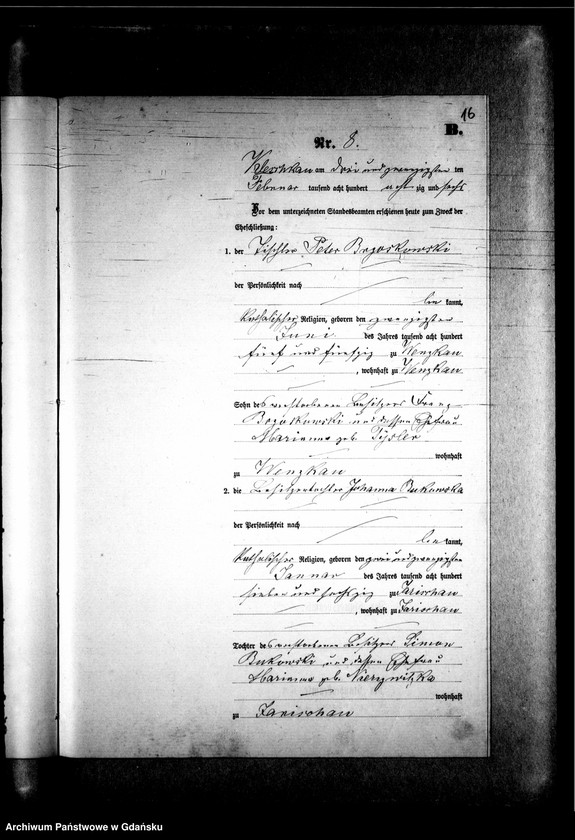 16
B.
Nr. 8.
am drei und zwanzigsten ten
Februar tausend acht hundert acht zig und sechs
Vor dem unterzeichneten Standesbeamten erschienen heute zum Zweck der
Eheschließung:
1. der Tischler Peter
der Persönlichkeit nach
be kannt,
katholischer Religion, geboren den zwanzigsten
Juni des Jahres tausend acht hundert
fünf und fünfzig zu Wenzkau
, wohnhaft zu Wenzkau
Sohn des verstorbenen Besitzers Franz
und dessen Ehefrau
Marianna geb.
wohnhaft
zu Wenzkau
2. die Besitzertochter Johanna Bukowska
der Persönlichkeit nach
be kannt,
katholischer Religion, geboren den zwei und zwanzigsten
Januar des Jahres tausend acht hundert
sieben und sechzig zu Jarischau
, wohnhaft zu Jarischau
Tochter des verstorbenen Besitzers Simon
Bukowski und dessen Ehefrau
Marianna geb.
wohnhaft
zu Jarischau
Archiwum Państwowe w Gdańsku